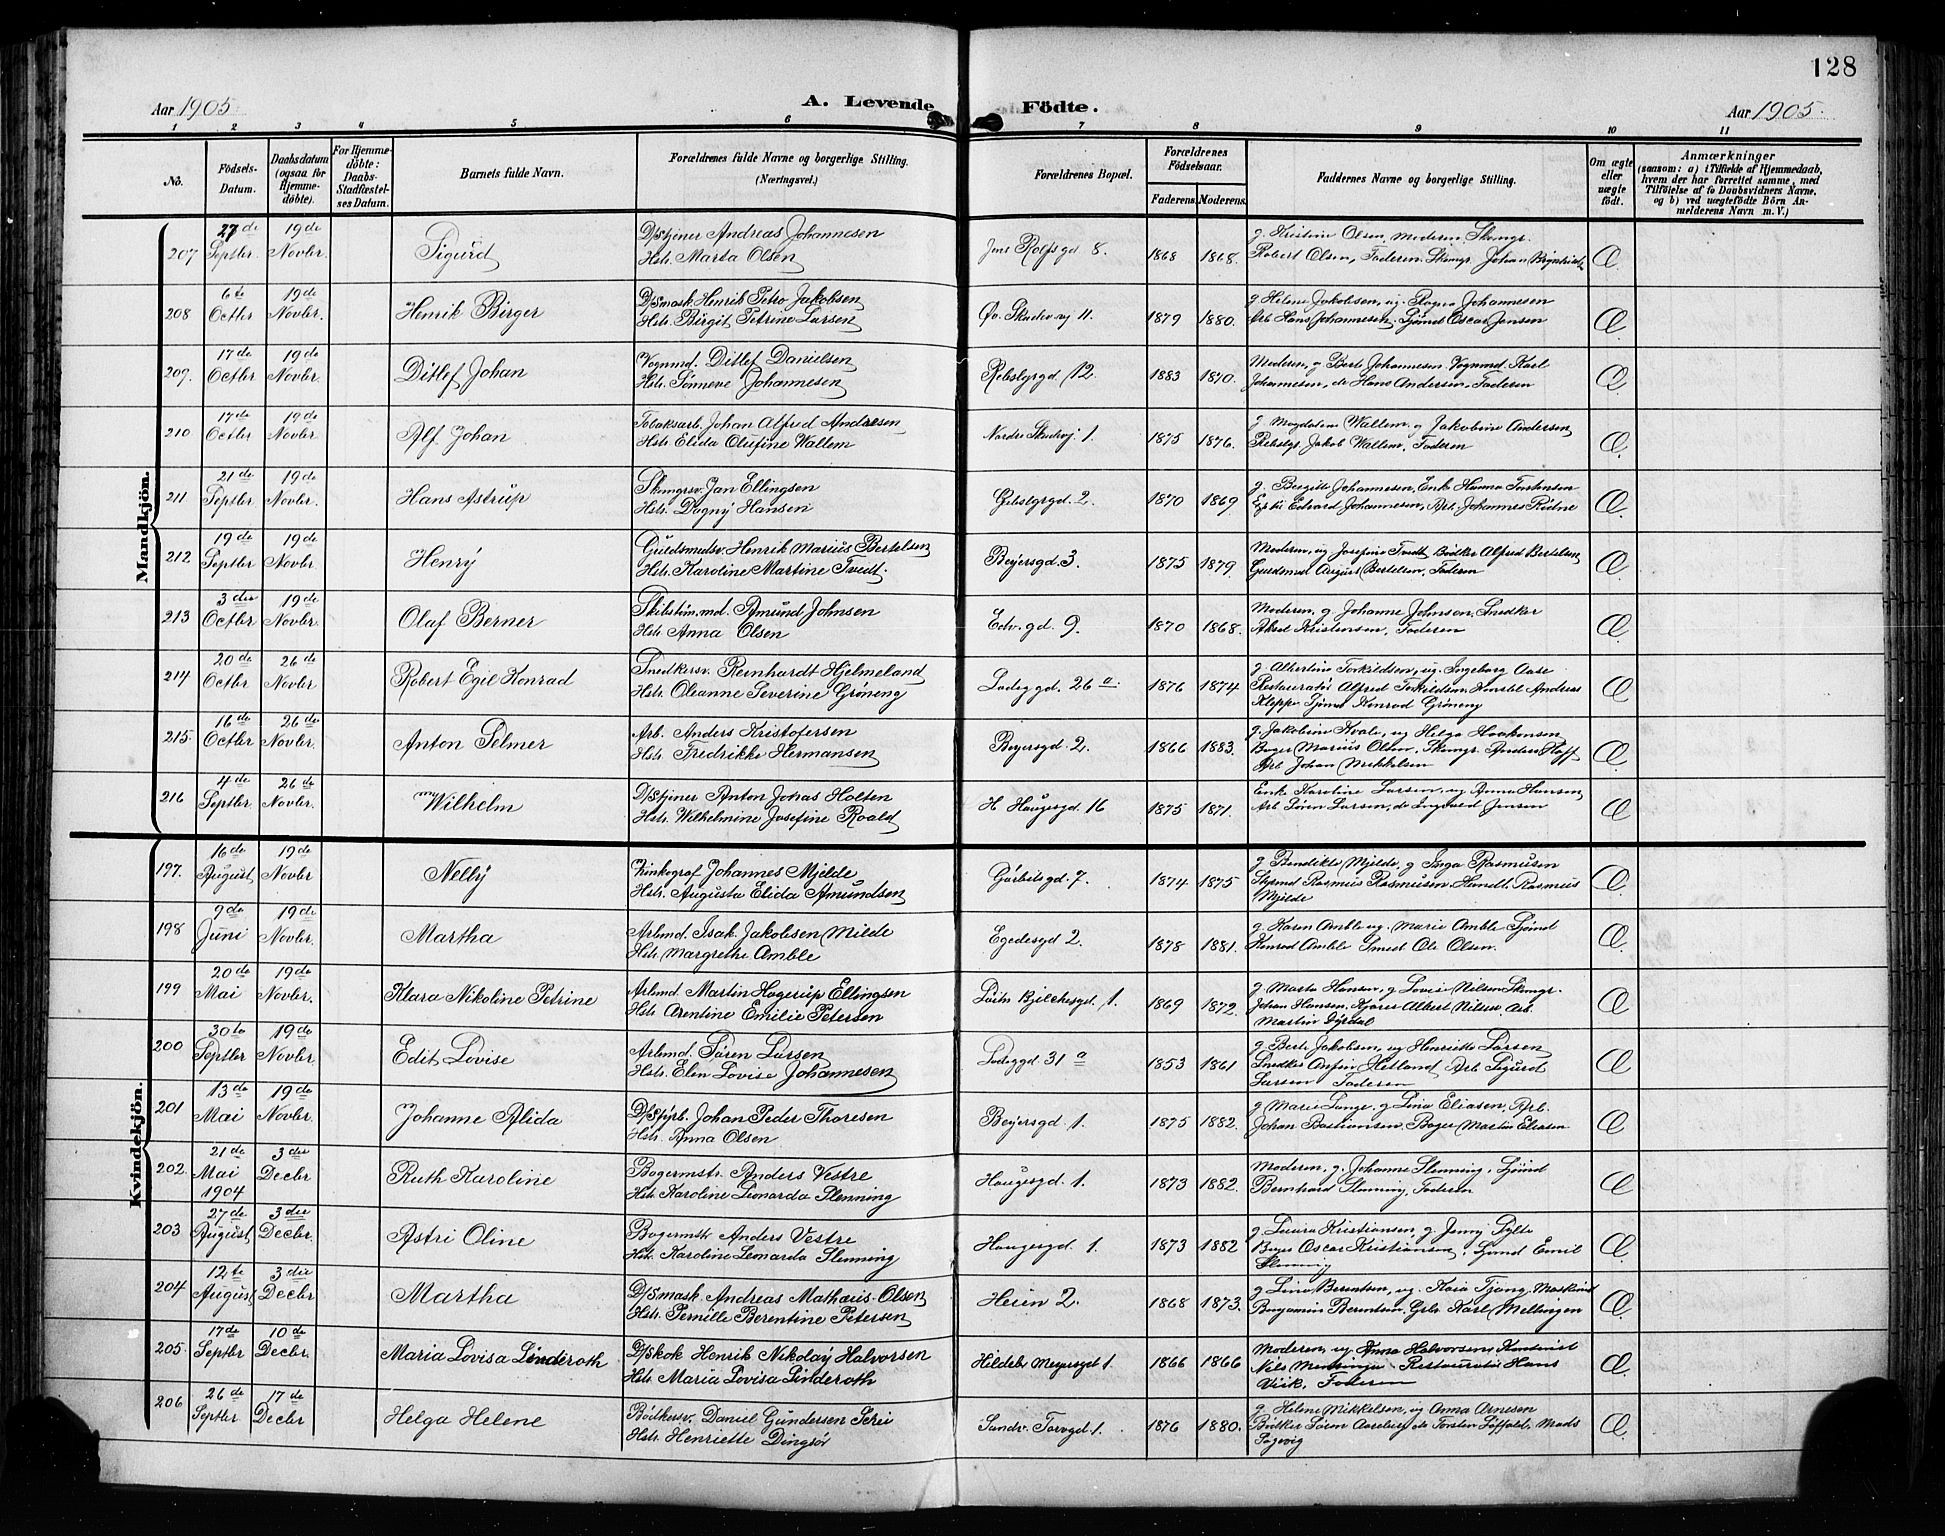 128
Aar 1905
A. Levende Födte.
Aar 1905
1 2 3 4 5 6 7 8 9 10 11
No.
Födsels-Datum.
Daabsdatum (ogsaa for Hjemme-döbte).
For Hjemme-döbte: Daabs-Stadfæstel-ses Datum.
Barnets fulde Navn.
Forældrenes fulde Navne og borgerlige Stilling.
(Næringsvei.)
Forældrenes Bopæl.
Forældrenes Födselsaar.
Faderens. Moderens.
Faddernes Navne og borgerlige Stilling.
Om ægte eller uægte födt.
Anmærkninger
(saasom: a) i Tilfælde af Hjemmedaab, hvem der har forrettet samme, med Tilföielse af to Daabsvidners Navne, og b) ved uægtefödte Börn An-melderens Navn m. V.)
Mandkjön.
207 27de Septbr. 19de Novbr. Sigurd
D/Stjiner Andreas Johannesen
Hstr. Marta Olsen
Jons Rolfsgd 8. 1868 1868.
g. Kristine Olsen, Moderen, Skomgr.
Robert Olsen, Faderen, Skomgr. Johan
Æ
208 6te Octbr 19de Novbr. Henrik Birger
D/Smask. Henrik Petro Jakobsen
Hstr. Birgit Petrine Larsen
Øv. Skudev 4. 1879 1880.
g. Helene Jakobsen, ug. Ragna Johannesen
Arb. Hans Johannesen. Sjömd Oscar Jensen
Æ
209. 17de Octbr 19de Novbr. Ditlef Johan
Vognmd. Ditlef Danielsen
Hstr. Sönneve Johannesen
Rebslgrgd 12. 1883 1870.
Moderen, g Berte Johannesen. Vognmd. Karl
Johannesen, do Hans Andersen, Faderen
Æ
210 17de Octbr 19de Novbr. Alf Johan
Tobaksarb. Johan Alfred Andresen
Hstr. Elida Olufine Wallem
Nordre Skudevj 1. 1875 1876.
g Magdalene Wallem, g Jakobine Andersen,
Rebslgr. Jakob Wallem, Faderen
Æ
211 21de Septbr 19de Novbr. Hans Astrup
Skomgrsv. Jan Ellingsen
Hstr. Dagny Hansen
Gibslgrgd. 2. 1870 1869
g. Bergitte Johannesen, Enk Hanna Torstensen
Edvard Johannesen, Arb. Johannes Ridne
Æ
212 19de Septbr 19de Novbr. Henry
Guldsmedsv. Henrik Marius Bertelsen
Hstr. Karoline Martine Tvedt.
Beyersgd. 3. 1875 1879.
Moderen, ug Josefine Tvedt Bödker Alfred Bertelsen,
Guldsmed August Bertelsen, Faderen
Æ
213 3die Octbr 19de Novbr. Olaf Berner
Skibstöm.md. Amund Johnsen
Hstr. Anna Olsen
Edv. gd. 9. 1870 1868.
Moderen, g. Johanne Johnson. Snedker
Aksel Kristensen, Faderen
Æ
214 20de Octbr 26de Novbr. Robert Egil Konrad
Snedkersv. Reinhardt Hjelmeland
Hstr. Oleanne Severine Gröning
Ladeggd. 26 a. 1876 1874
g. Albertine Torkildsen, ug. Ingeborg Aase
Restauratör Alfred Torkildsen Konstbl Andreas
Kleppe Sjömd Konrad Gröning
Æ
215. 16de Octbr 26de Novbr. Anton Selmer
Arb. Anders Kristofersen
Hstr. Fredrikke Hermansen
Beyersgd. 2. 1866 1883.
g. Jakobine Kvale, ug Helga Haakonsen
Bager Marius Olsen, Skomgr. Anders Hoff
Arb Johan Mikkelsen
Æ
216 4de Septbr 26de Novbr. Wilhelm
D/Stjiner Anton Johas Holten
Hstr. Wilhelmine Josefine Roald
H. Haugesgd 16 1875 1871.
Enk. Karoline Larsen, ug Anna Hansen,
Arb Sören Larsen, do Ingvald Jensen
Æ
Kvindekjön.
197. 16de August 19de Novbr Nelly
Zinkograf Johannes Mjelde
Hstr. Augusta Elida Amundsen
Gørbitsgd. 7. 1874 1875
g Bendikte Mjelde, g Inga Rasmusen
Stpmd Rasmus Rasmusen Handl. Rasmus
Mjelde
Æ
198 9de Juni 19de Novbr. Martha
Arbmd. Isak Jakobsen Milde
Hstr. Margrethe Amble
Egedesgd 2. 1878 1881.
g. Karen Amble ug. Marie Amble Sjömd
Konrad Amble Smed Ole Olsen.
Æ
199 20de Mai 19de Novbr. Klara Nikoline Petrine
Arbmd Martin Hagerup Ellingsen
Hstr. Arentine Emilie Petersen
Bjelchesgd. 1. 1869 1872.
g. Marta Hansen, g Lovise Nilsen Skomgr.
Johan Hansen, Kjører Albert Nilsen, Arb.
Martin Dyrdal
Æ
200 30te Septbr 19de Novbr. Edit Lovise
Arbmd. Sören Larsen
Hstr. Elen Lovise Johannesen
Ladeggd 31 a 1853 1861
g Berte Jakobsen, ug Henriette Larsen
Snedker Anfin Hetland, Arb. Sigurd
Larsen Faderen
Æ
201 13de Mai 19de Novbr. Johanne Alida
D/Sfyrb. Johan Peder Thoresen
Hstr. Anna Olsen
Beyersgd 1. 1875 1882.
g Marie Lange, g Lina Eliasen, Arb.
Johan Bastiansen, Bager Martin Eliasen
Æ
202. 21de Mai 1904 3die Decbr Ruth Karoline
Bagermstr. Anders Vestre
Hstr. Karoline Lenarda Slenning
Haugesgd. 1. 1873 1882.
Moderen, g. Johanne Slenning, Sjömd
Bernhard Slenning, Faderen
Æ
203. 27de August 3die Decbr. Astri Oline
Bagermstr Anders Vestre
Hstr. Karoline Lenarda Slenning
Haugesgd. 1. 1873 1882
g. Laura Kristiansen, g. Jenny Sylte
Bager Oscar Kristiansen, Sjömd Emil
Slenning
Æ
204 12te August 3die Decbr Martha
D/Smask. Andreas Mathæus Olsen
Hstr. Pernille Berentine Petersen
Hesin 2. 1868 1873.
g Lina Berentsen, ug. Kaia Tjong, Maskinist
Benjamin Berentsen, Karl Mellingen
Æ
205. 17de Septbr 10de Decbr. Maria Lovisa Linderoth
D/Skok Henrik Nikolay Halvorsen
Hstr. Maria Lovisa Linderoth
Hildeb. Meyersgd 1. 1866 1866
Moderen, ug Anna Halvorsen Konduit
Nils Restauratör Hans
Viik, Faderen
Æ
206 26de Septbr 17de Decbr. Helga Helene
Bödkersv. Daniel Gundersen Serei
Hstr. Henriette Dingsör
Sandv. Torvgd 1. 1876 1880.
g. Helene Mikkelsen, ug Anna Arnesen
Bödker Sören do Torsten Söffeld, Mads
Sagevig
Æ